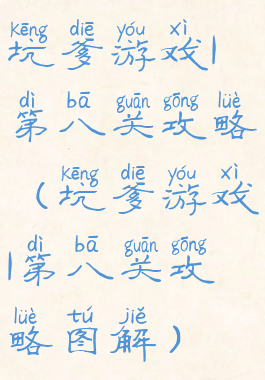 kēng diē yóu xì
坑爹游戏|
dì bā guān gōng lüè
第八关攻略
kēng diē yóu xì
(坑爹游戏
dì bā guān gōng
|第八关攻
lüè tú jiě
略图解)